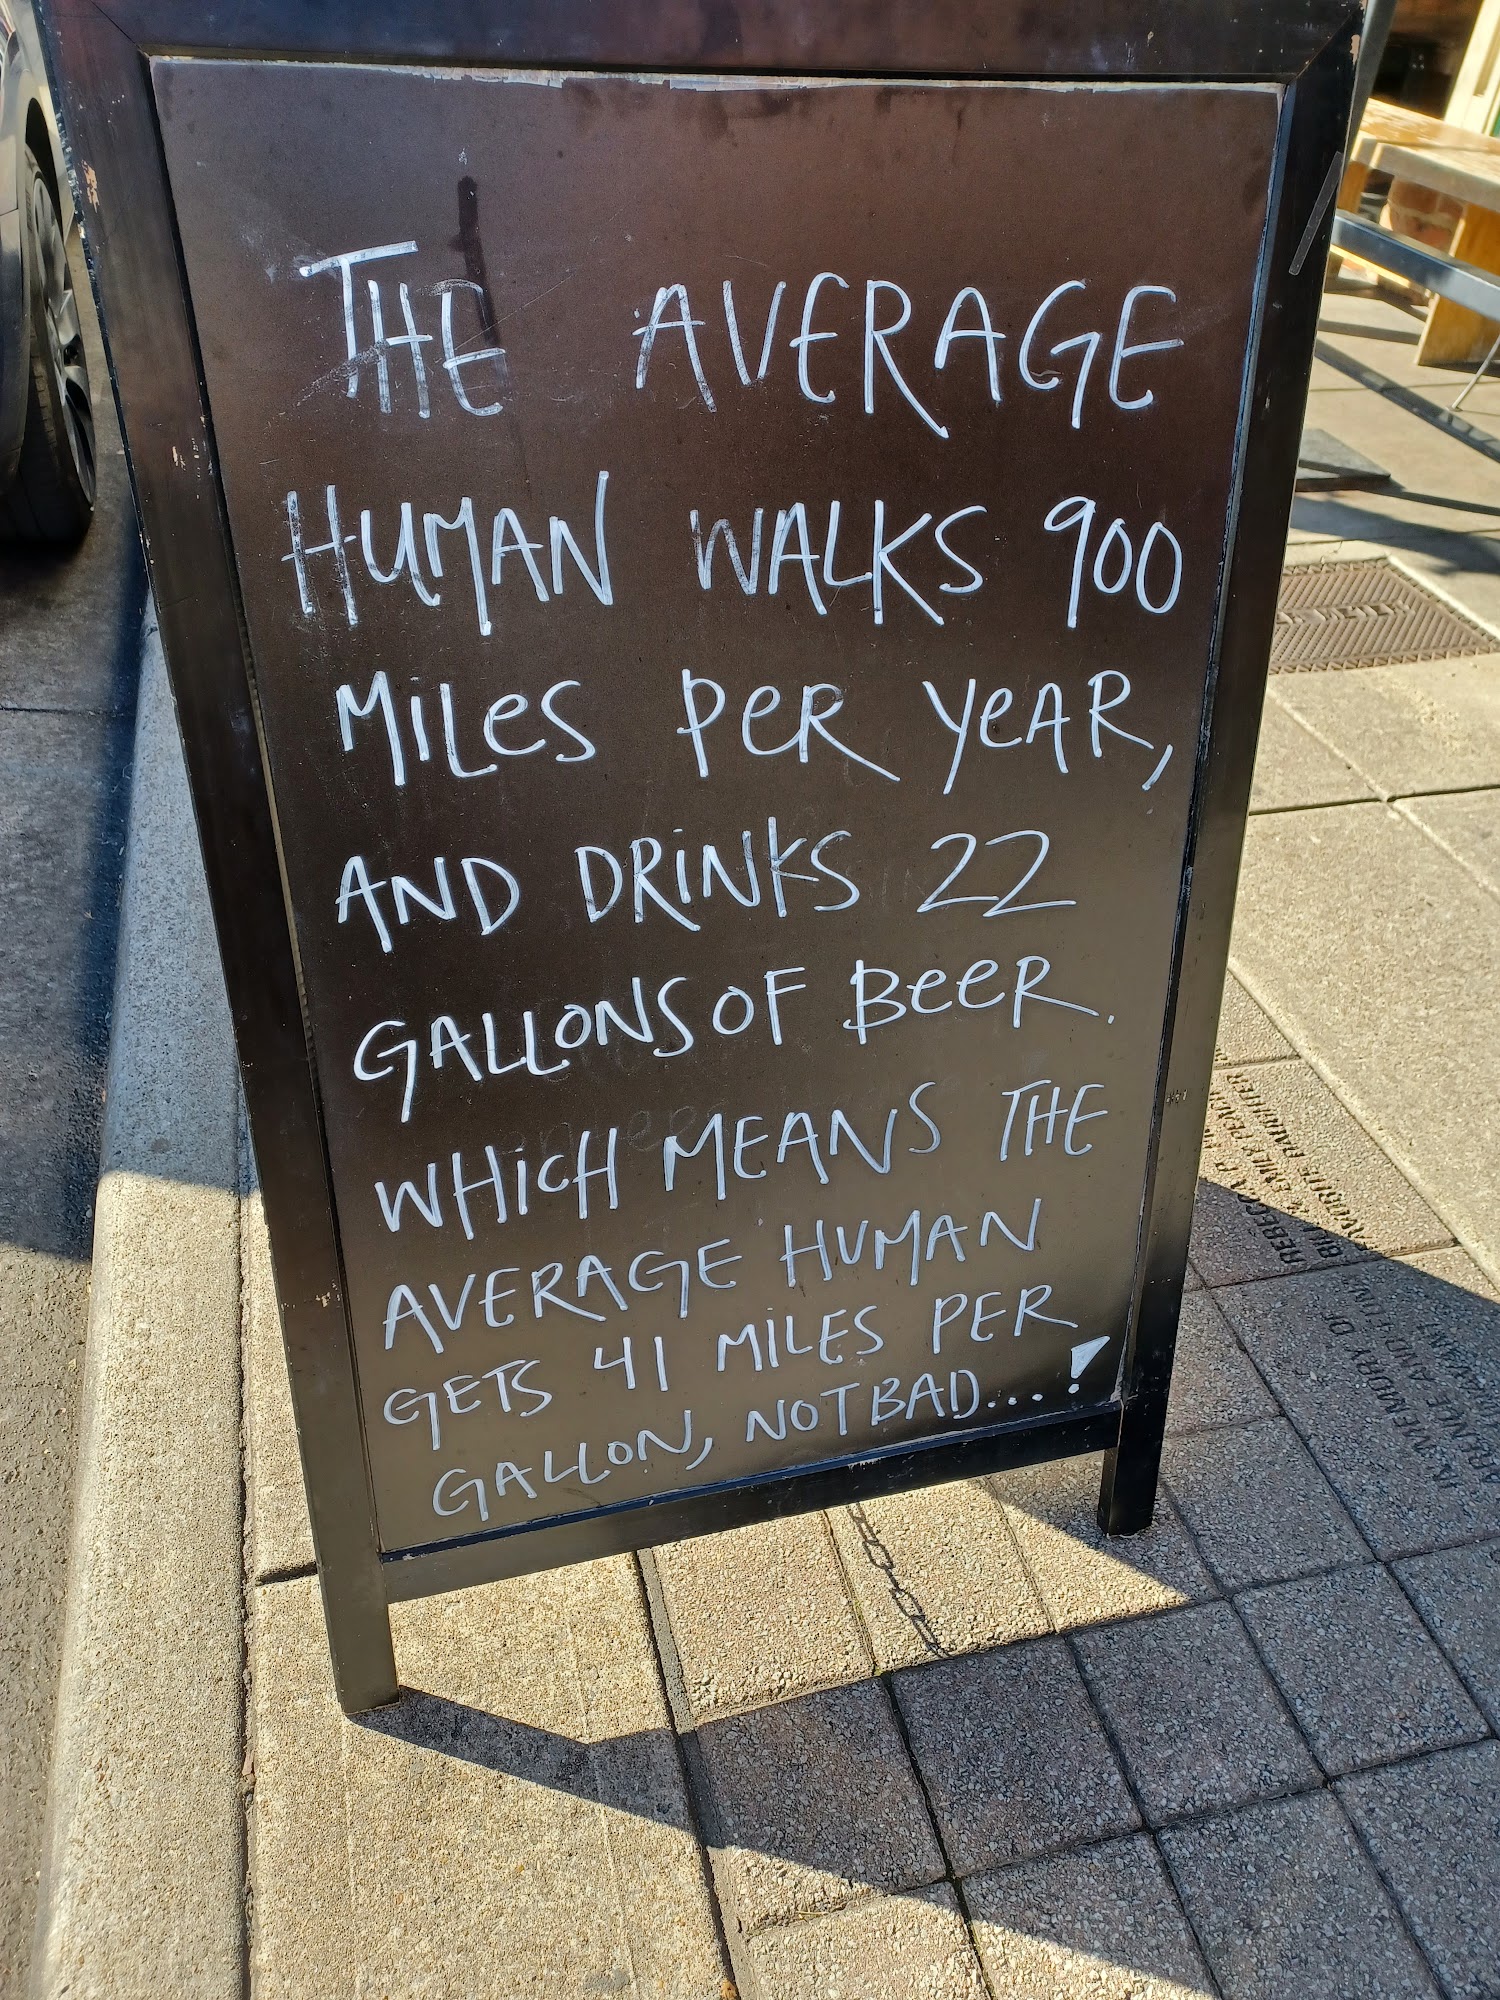 THE AVERAGE
HUMAN WALKS 900
MILES PER YEAR,
AND DRINKS 22
GALLONS OF BEER.
WHICH MEANS THE
AVERAGE HUMAN
GETS 41 MILES PER
GALLON, NOT BAD...!